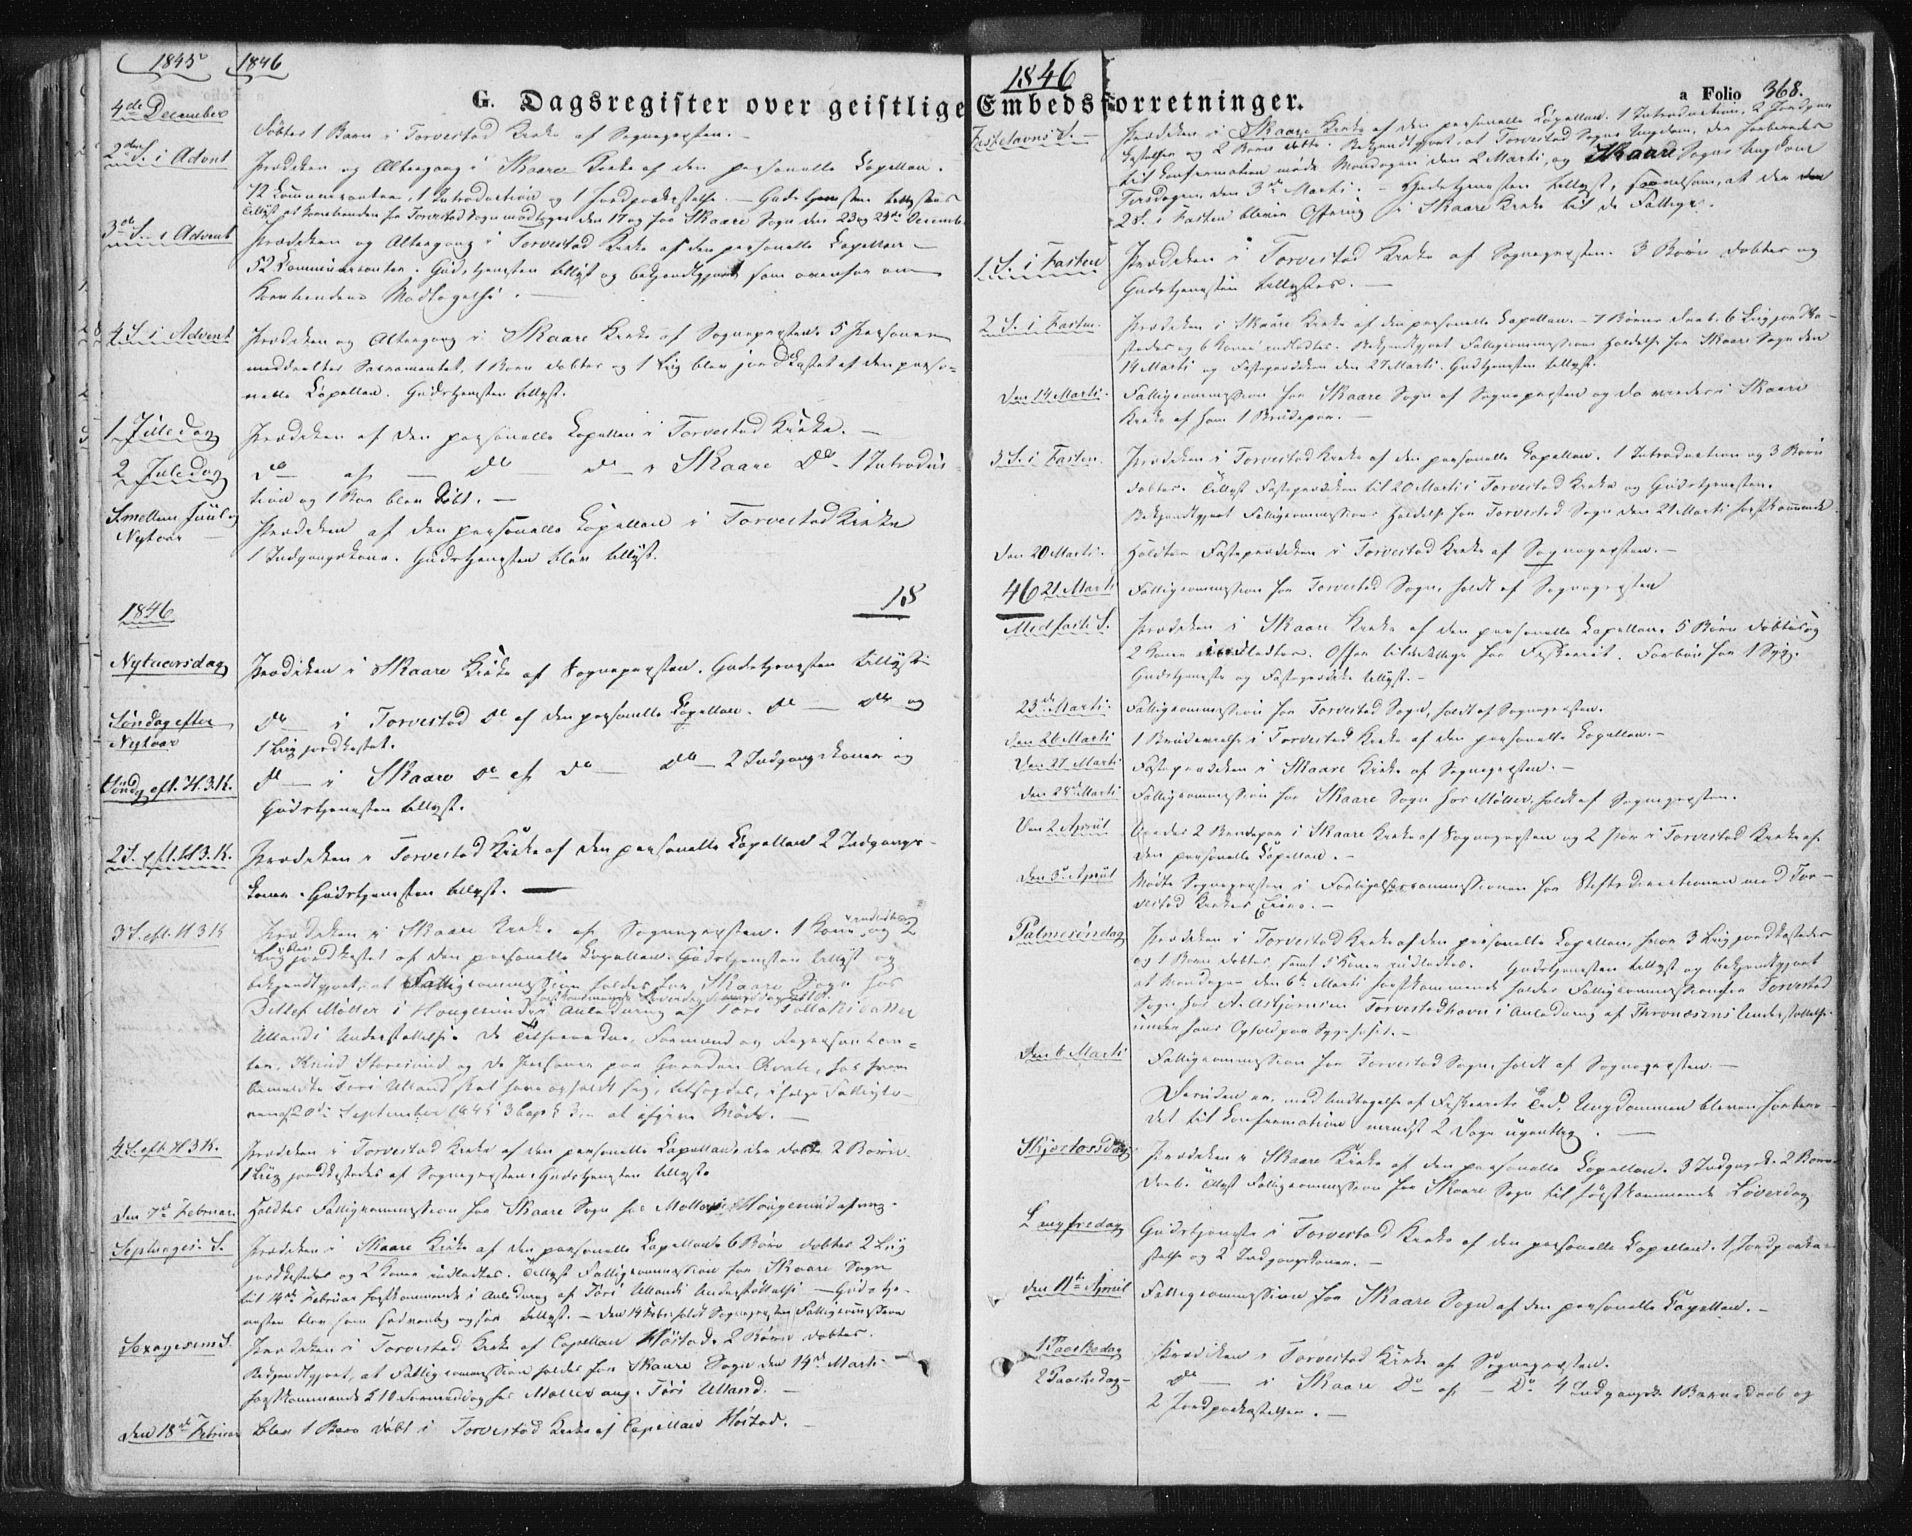 1845 1846
G. Dagsregister over geistlige
4de December
Døbtes 1 Barn i Torvestad Kirke af Sognepresten.
2den S. i Advent
Prædiken og Altergang i Skaare Kirke af den personelle Capellan.
12 Communicanter, 1 Introduction og 1 Jordpaakastelse. Gudstjenesten tillystes
3de S. i Advent
Prædiken og Altergang i Torvestad Kirke af den personelle Capellan
52 Communicanter. Gudstjenesten tillyst og bekjendtgjort som ovenfor om
Korntiendens Modtagelse.
4 S. i Advent
Prædiken og Altergang i Skaare Kirke af Sognepresten. 5 Personer
meddeeltes Sacramentet, 1 Barn døbtes og 1 Liig blev jordkastet af den perso-
nelle Capellan. Gudstjenesten tillyst.
1 Juledag
Prædiken af den personelle Capellan i Torvestad Kirke.
2 Juledag
do af do do i Skaare do 1 Introduc-
tion og 1 Barn blev døbt.
S. mellem Juul og
Nytaar
Prædiken af den personelle Capellan i Torvestad Kirke
1 Indgangskone. Gudstjenesten blev tillyst.
1846
18
Nytaarsdag
Prædiken i Skaare Kirke af Sognepresten. Gudstjenesten tillyst
Søndag efter
Nytaar
do i Torvestad do af den personelle Capellan. do do og
1 Liig jordkastet.
Sønd. eft. H. 3. K.
do i Skaare do af do do 2 Indgangskoner og
Gudstjenesten tillyst.
2 S. eft. H 3. K.
Prædiken i Torvestad Kirke af den personelle Capellan 2 Indgangs-
koner. Gudstjenesten tillyst.
3 S. eft. H 3 K
Prædiken i Skaare Kirke af Sognepresten. 1 Kone indledtes og 2
Liig jordkastet af den personelle Capellan. Gudstjenesten tillyst og
bekjendtgjort, at Fattigcommission holdes for Skaare Sogn hos
Ditlef Møller i Hougesund i Anledning af Tori Tollaksdatter
Ullands Understøttelse.
4 S. eft. H 3 K.
Prædiken i Torvestad Kirke af den personelle Capellan, der døbte 2 Børn.
1 Liig jordkastedes af Sognepresten. Gudstjenesten tillyst.
den 7de Februar
Holdtes Fattigcommission for Skaare Sogn hos Møller i Hougesund af mig.
Septuages. S.
Prædiken i Skaare Kirke af den personelle Capellan. 6 Børn døbtes 2 Liig
jordkastedes og 2 Koner indledtes. Tillyst Fattigcommission for Skaare Sogn
til 14de Februar førstkommende i Anledning af Tori Ullands Understøttelse. Gudstje-
nesten blev som sædvanlig ogsaa tillyst. Den 14 Febr. holdt Sognepresten Fattigcommission
Sexagesim S.
Prædiken i Torvestad Kirke af Capellan Høstad. 2 Børn døbtes.
Bekjendtgjort, at Fattigcommission holdes for Skaare Sogn den 14de Marti
førstkommende Kl 10 Formiddag hos Møller ang. Tori Ulland.
den 18de Februar
blev 1 Barn døbt i Torvestad Kirke af Capellan Høstad.
1846
Embedsforretninger.
a Folio 368.
Fastelavns S.
Prædiken i Skaare Kirke af den personelle Capellan. 1 Introduction, 2 Jordpaa-
kastelser og 2 Børn døbte. Bekjendtgjort, at Torvestad Sogns Ungdom, der forberedes
til Confirmation møde Mandagen den 2 Marti, og Skaare Sogns Ungdom
Tirsdagen den 3de Marti. Gudstjenesten tillyst, at der den
2 S. i Fasten bliver Offring i Skaare Kirke til de Fattige.
1 S. i Fasten
Prædiken i Torvestad Kirke af Sognepresten. 3 Børn døbtes og
Gudstjenesten tillystes.
2 S. i Fasten
Prædiken i Skaare Kirke af den personelle Capellan. 7 Børns Daab. 6 Liig jordka-
stedes og 6 Koner indledtes. Bekjendtgjort Fattigcommissions Holdelse for Skaare Sogn den
14 Marti og Fasteprædiken den 27 Marti. Gudstjenesten tillyst.
Den 14 Marti
Fattigcommission for Skaare Sogn af Sognepresten og da viedes i Skaare
Kirke af ham 1 Brudepar.
3 S. i Fasten
Prædiken i Torvestad Kirke af den personelle Capellan. 1 Introduction og 3 Børn
døbtes. Tillyst Fasteprædiken til 20 Marti i Torvestad Kirke og Gudstjenesten.
Bekjendtgjort Fattigcommissions Holdelse for Torvestad Sogn den 21 Marti førstkommende
Den 20 Marti
Holdtes Fasteprædiken i Torvestad Kirke af Sognepresten.
46 21 Marti
Fattigcommission for Torvestad Sogn, holdt af Sognepresten
Midfaste S.
Prædiken i Skaare Kirke af den personelle Capellan. 5 Børn døbtes og
2 Koner indledtes. Forbøn for 1 Syg.
Gudstjeneste og Fasteprædiken tillyst.
23de Marti
Fattigcommission for Torvestad Sogn, holdt af Sognepresten.
Den 26 Marti
1 Brudevielse i Torvestad Kirke af den personelle Capellan.
Den 27 Marti
Fasteprædiken i Skaare Kirke af Sognepresten.
den 28de Marti
Fattigcommission for Skaare Sogn hos Møller, holdt af Sognepresten.
Den 2 April
Viedes 2 Brudepar i Skaare Kirke af Sognepresten og 2 Par i Torvestad Kirke af
den personelle Capellan.
den 3de April
Mødte Sognepresten i Forligelsescommissionen for Stiftsdirectionen med Tor-
vestad Kirkes Eiere.
Palmesøndag
Prædiken i Torvestad Kirke af den personelle Capellan, hvor 3 Liig jordkastedes
og 1 Barn døbtes samt 5 Koner indledtes. Gudstjenesten tillyst og bekjendtgjort
at Mandagen den 6te Marti førstkommende holdes Fattigcommission for Torvestad
Sogn hos A. Asbjørnsen Torvestadhavn i Anledning af Understøttelse
under hans Ophold paa Sygehuset.
Den 6 Marti
Fattigcommission for Torvestad Sogn, holdt af Sognepresten.
Desuden er, med Undtagelse af Fiskeriets Tid, Ungdommen bleven forbere-
det til Confirmation mindst 2 Dage ugentlig.
Skjertorsdag
Prædiken i Skaare Kirke af den personelle Capellan. 3 Indgangsk. 2 Børns
Daab. Tillyst Fattigcommission for Skaare Sogn til førstkommende Løverdag
Langfredag
Gudstjeneste i Torvestad Kirke af den personelle Capellan. 1 Jordpaaka-
stelse og 2 Indgangskoner.
den 11te April
Fattigcommission for Skaare Sogn af den personelle Capellan.
1 Paaskedag
Prædiken i Torvestad Kirke af Sognepresten.
2 Paaskedag
do i Skaare do af do 4 Indgangsk. 1 Barnedaab og
2 Jordpaakastelser.